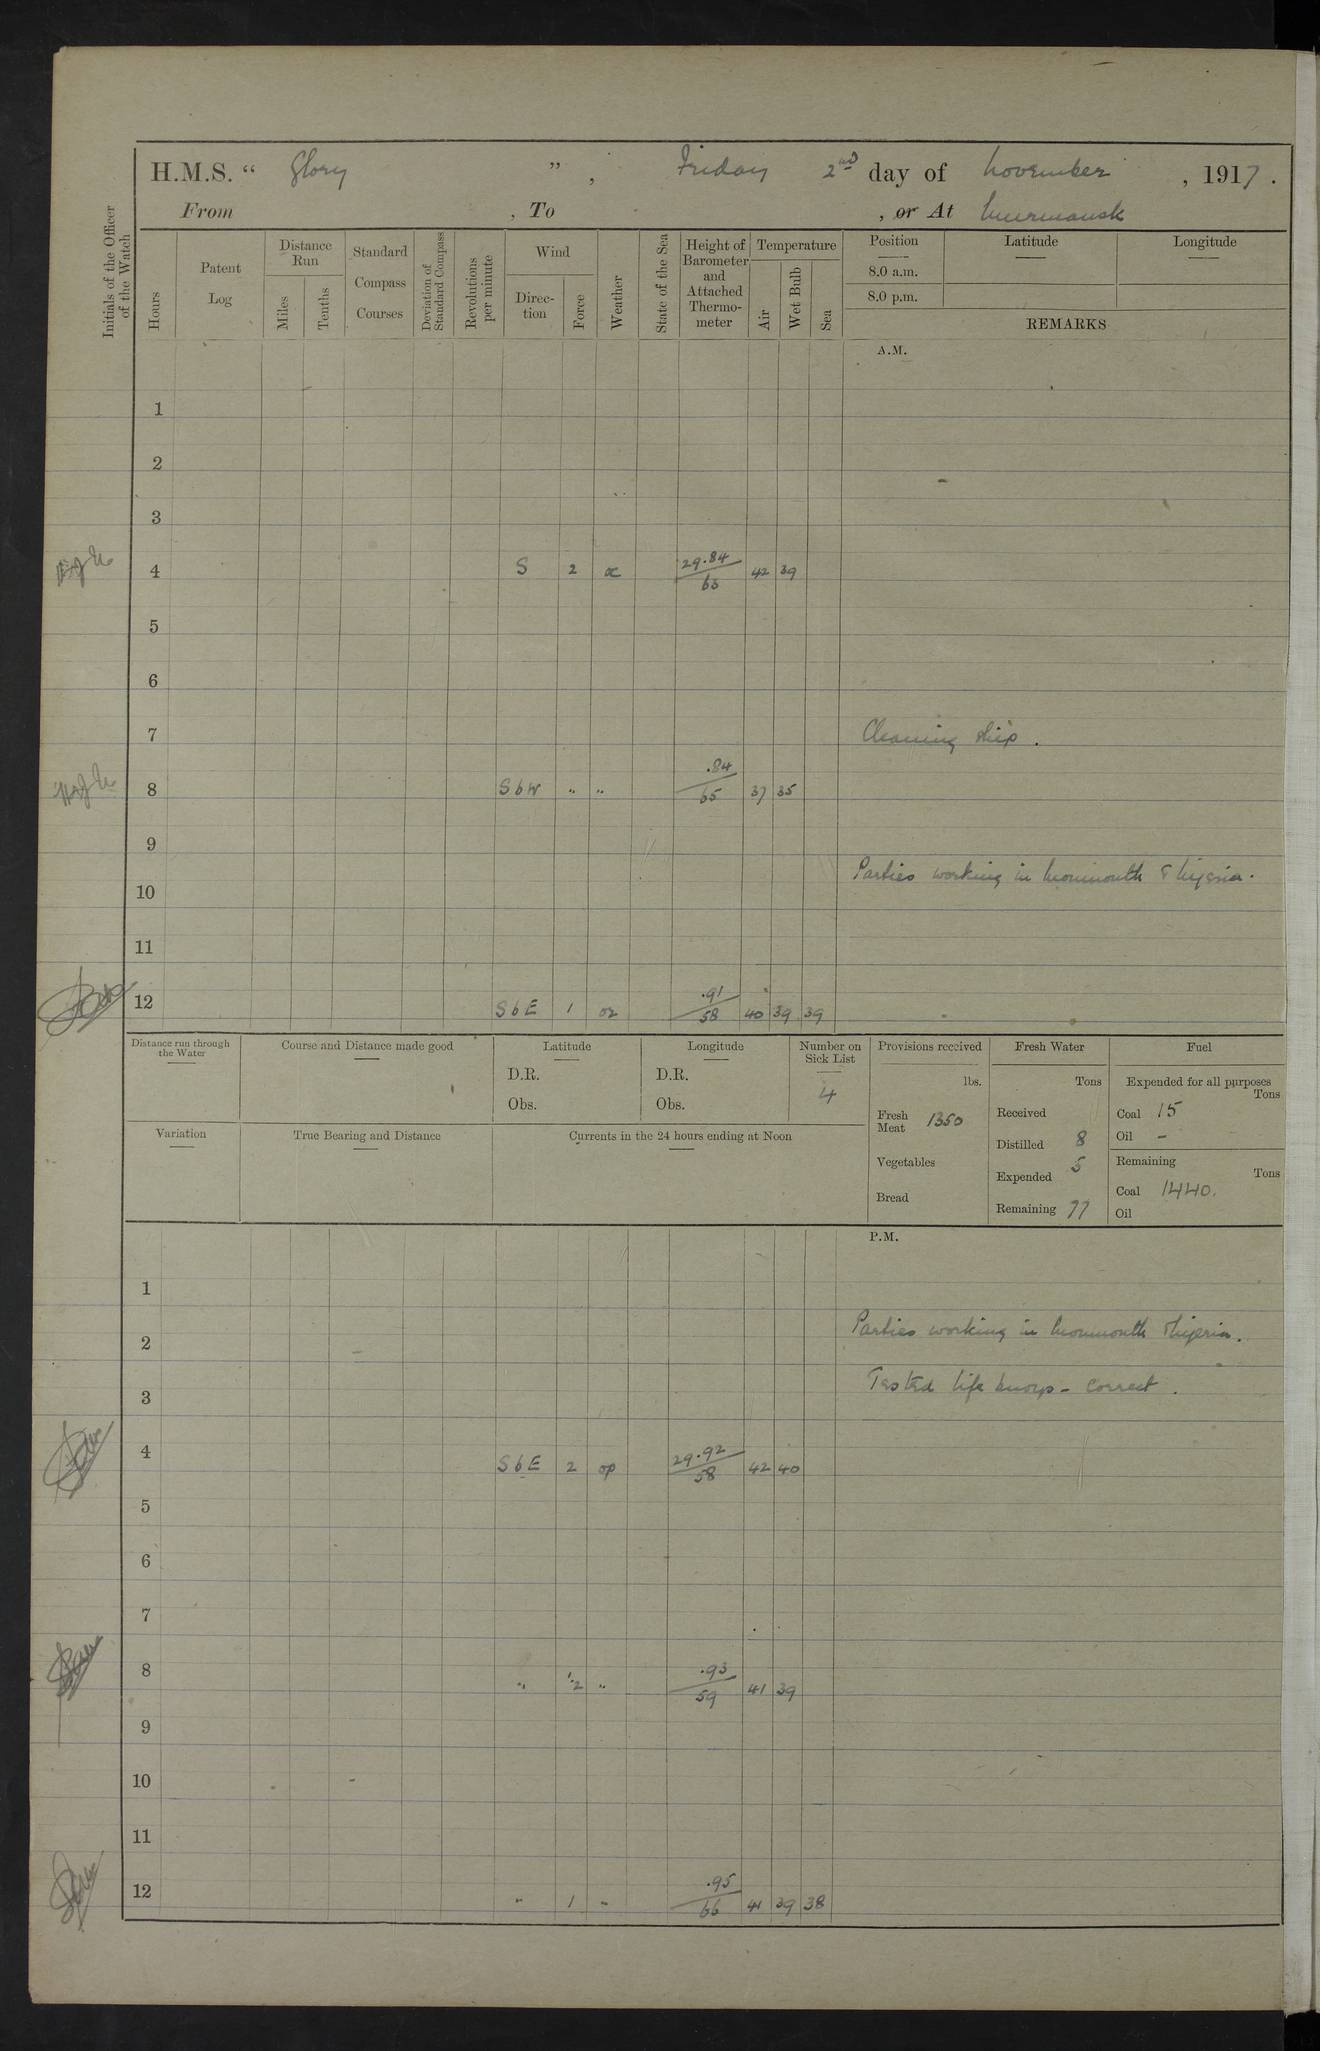 H.M.S. " Glory ", Friday 2nd day of November, 1917.
From , To , or At Murmansk
Initials of the Officer of the Watch
Hours
Patent Log
Distance Run
Miles
Tenths
Standard Compass Courses
Deviation of Standard Compass
Revolutions per minute
Wind
Direc-tion
Force
Weather
State of the Sea
Height of Barometer and Attached Thermo-meter
Temperature
Air
Wet Bulb
Sea
Position
Latitude
Longitude
8.0 a.m.
8.0 p.m.
REMARKS
A.M.
1
2
3
4 S 2 oc 29.84/63 42 39
5
6
7 Cleaning ship.
8 SbW " " .84/65 37 35
9
Parties working in Monmouth & Nigeria.
10
11
12 SbE 1 .91/58 40 39 39
Distance run through the Water
Course and Distance made good
Latitude
D.R.
Obs.
Longitude
D.R.
Obs.
Number on Sick List
4
Provisions received
lbs.
Fresh Meat 1350
Vegetables
Bread
Fresh Water
Tons
Received
Distilled 8
Expended 5
Remaining 77
Fuel
Expended for all purposes
Tons
Coal 15
Oil -
Remaining
Tons
Coal 1440.
Oil
Variation
True Bearing and Distance
Currents in the 24 hours ending at Noon
P.M.
1
Parties working in Monmouth & Nigeria.
2
Tested life buoys - correct.
3
4 SbE 2 op 29.92/58 42 40
5
6
7
8 " 1.2 " .93/59 41 39
9
10
11
12 " 1 " .95/66 41 39 38